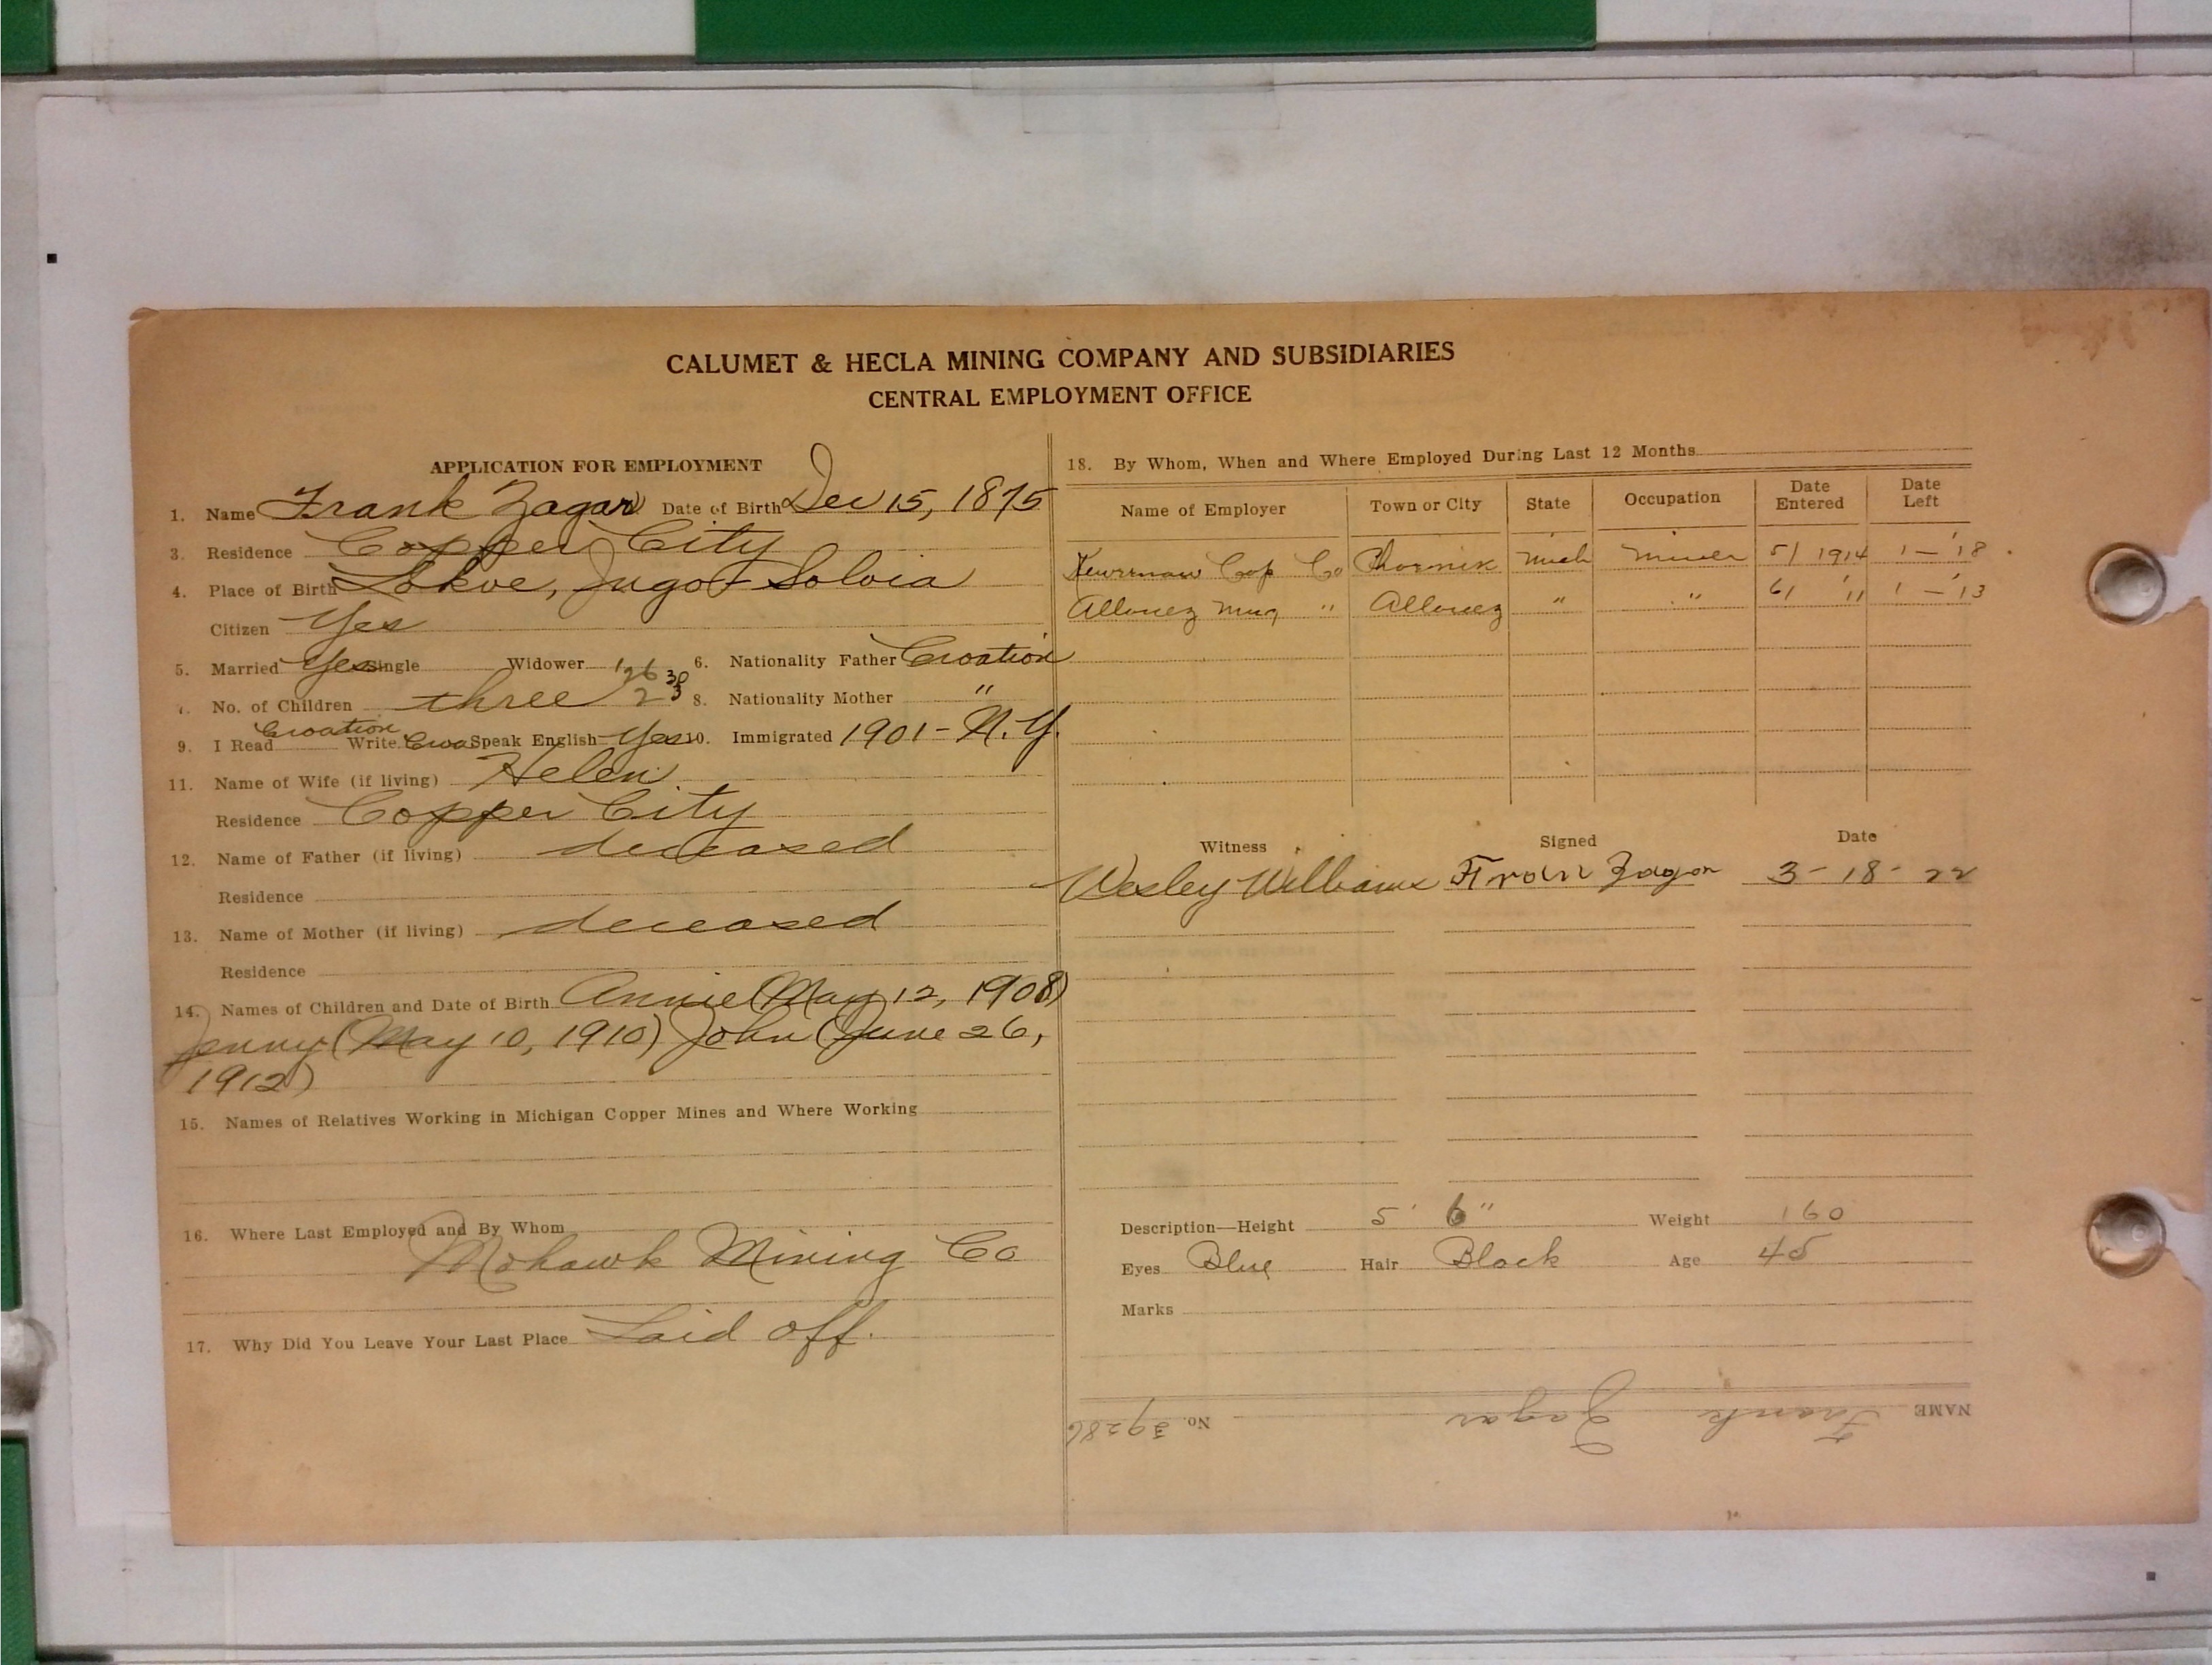 CALUMET & HECLA MINING COMPANY AND SUBSIDIARIES
CENTRAL EMPLOYMENT OFFICE
APPLICATION FOR EMPLOYMENT
1. Name Frank Zagar Date of Birth Dec 15, 1875
3. Residence Copper City
4. Place of Birth Lokve, Jugo-Solvia
Citizen Yes
5. Married Yes Single Widower 6. Nationality Father Croation
No. of Children three 8. Nationality Mother "
9. I Read Croation Write Croa Speak English Yes 10. Immigrated 1901 - N.Y.
11. Name of Wife (if living) Helen
Residence Copper City
12. Name of Father (if living) deceased
Residence
13. Name of Mother (if living) deceased
Residence
14. Names of Children and Date of Birth Annie (May 12, 1908)
Jenny (May 10, 1910) John (June 26,
1912)
15. Names of Relatives Working in Michigan Copper Mines and Where Working
16. Where Last Employed and By Whom
Mohawk Mining Co
17. Why Did You Leave Your Last Place Laid off.
18. By Whom, When and Where Employed During Last 12 Months
Name of Employer Town or City State Occupation Date Entered Date Left
Cop Co Mich Miner 5/ 1914 1 - '18
Allouez Mng " Allouez " " 6/ '11 1 - '13
Witness Signed Date
Wesley Williams Fran Zagar 3-18-22
Description—Height 5' 6" Weight 160
Eyes Blue Hair Black Age 45
Marks
NAME Frank Zagar No. 39286